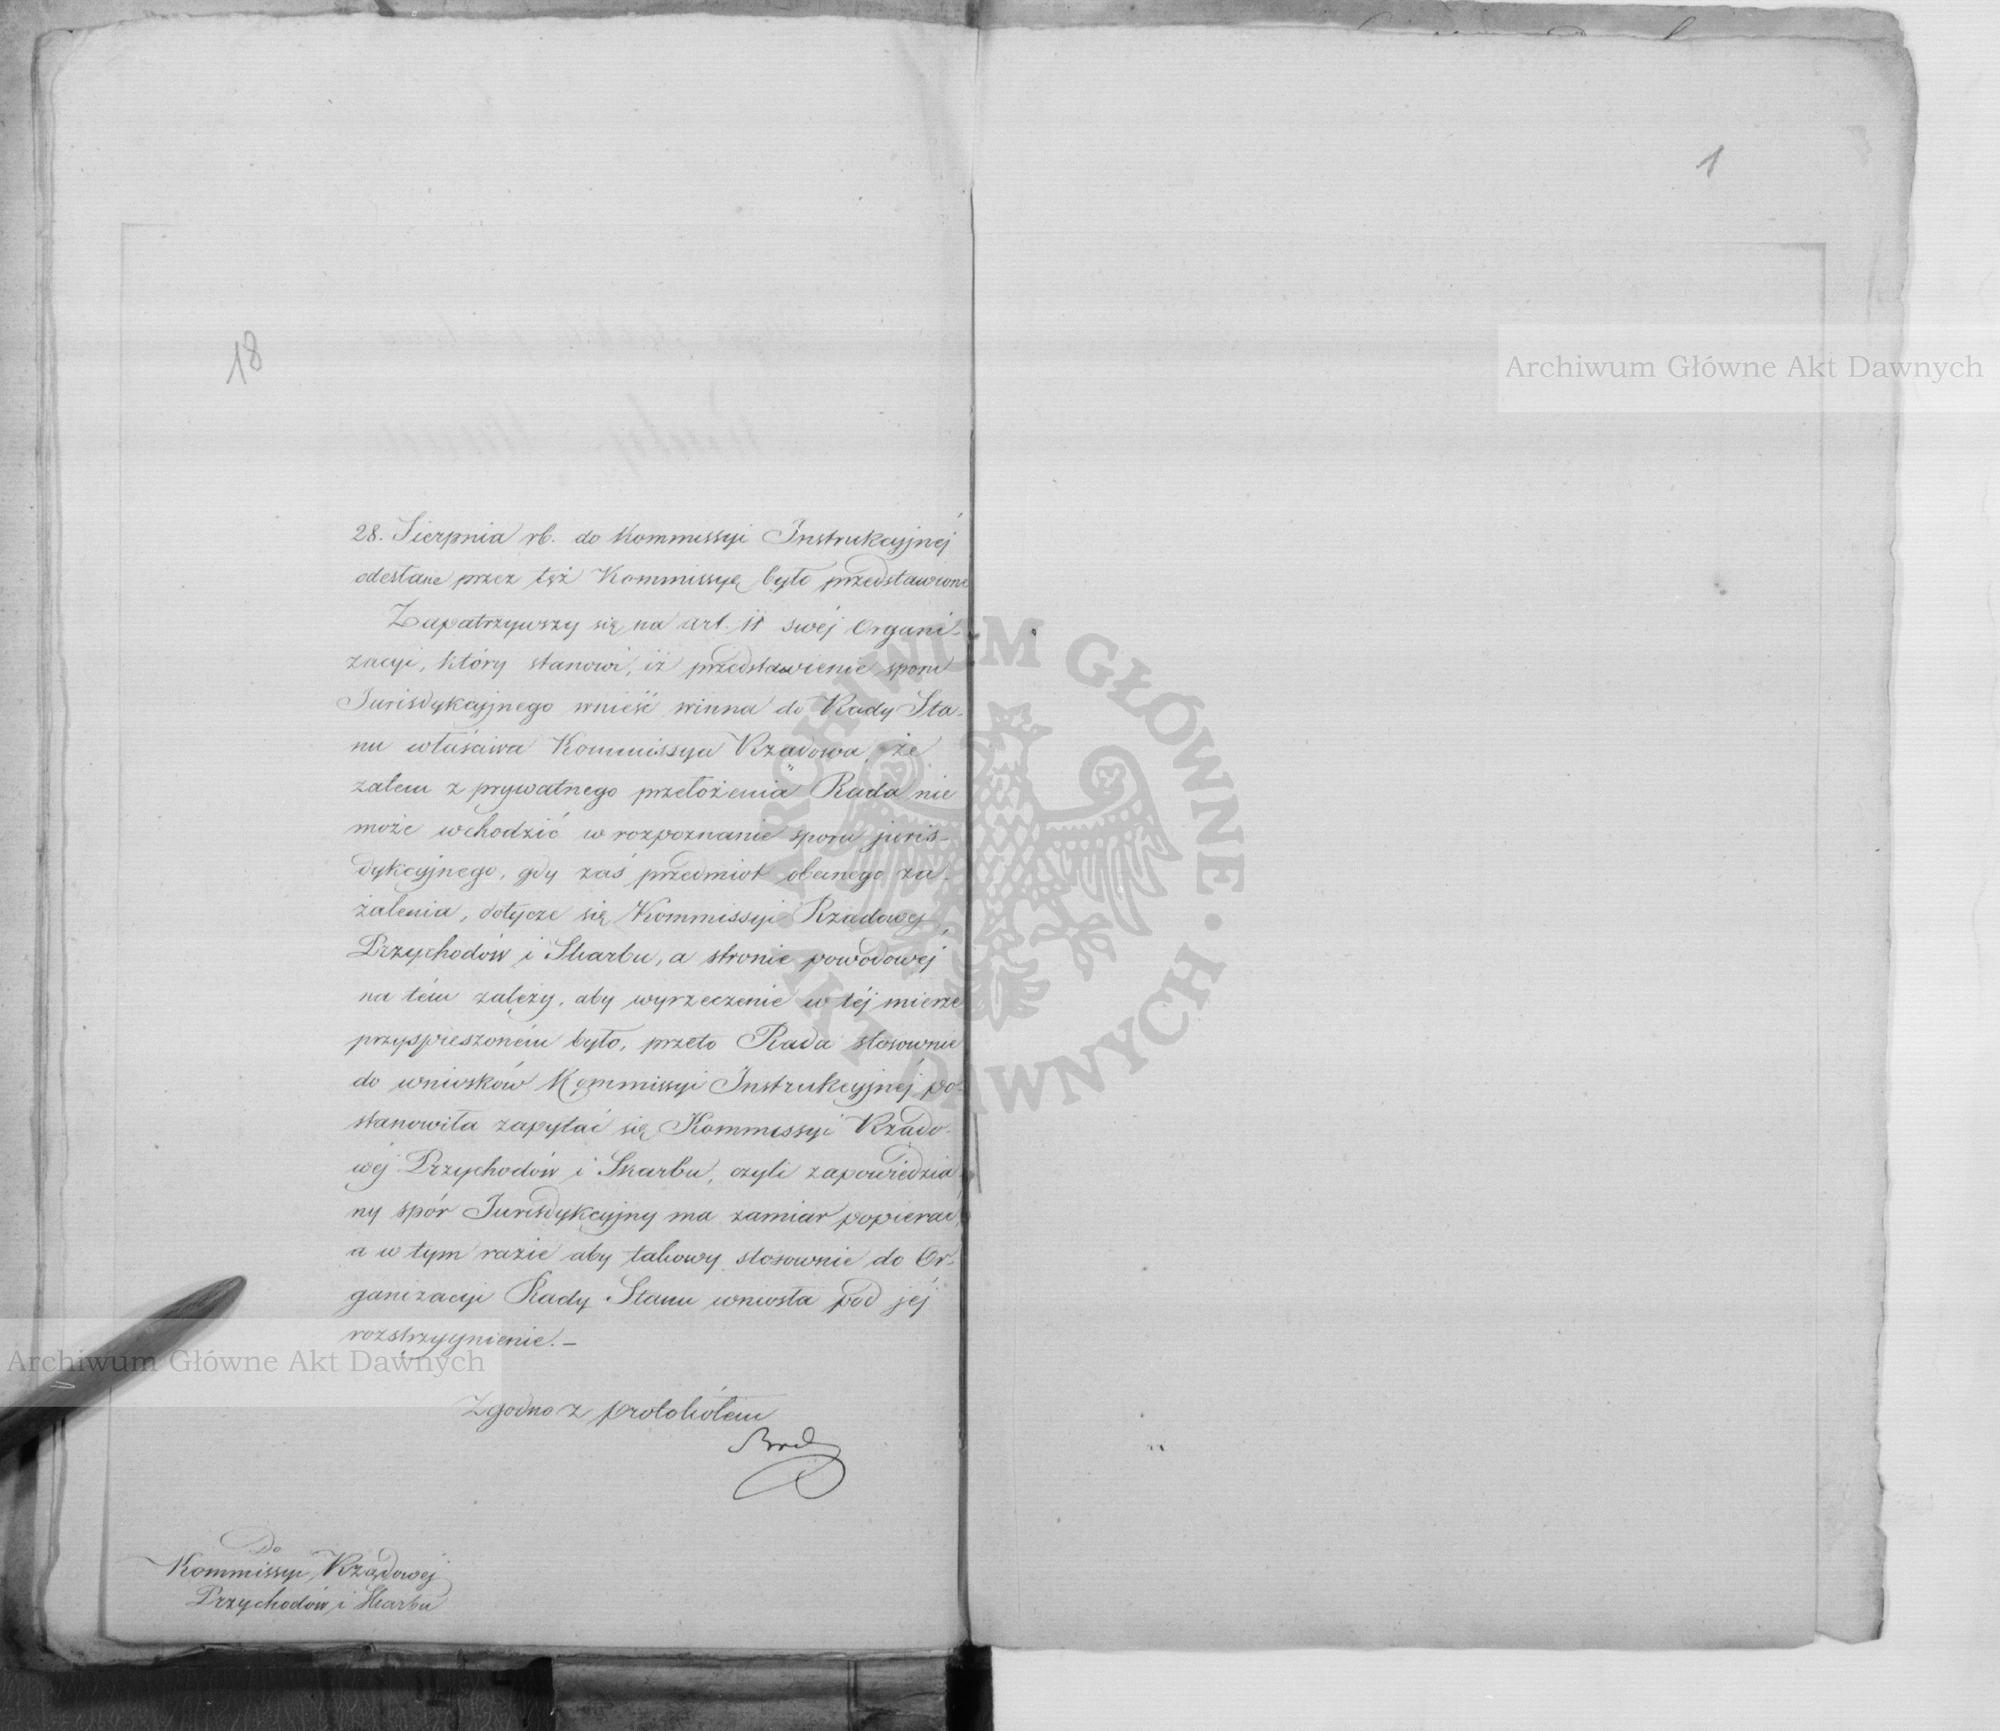 18
28. Sierpnia rb. do Kommissyi Instrukcyjnéj
odesłane przez tęż Kommissyę było przedstawione
Zapatrzywszy się na art. 11 swéj Organi-
zacyi, który stanowi, iż przedstawienie sporu
Jurisdykcyjnego wnieść winna do Rady Sta-
nu właściwa Kommissya Rządowa, że
zatem z prywatnego przełożenia Rada nie
może wchodzić w rozpoznanie sporu juris-
dykcyjnego, gdy zaś przedmiot obecnego za-
żalenia, dotycze się Kommissyi Rządowéj
Przychodów i Skarbu, a stronie powodowéj
na tém zależy, aby wyrzeczenie w téj mierze
przyspieszoném było, przeto Rada stosownie
do wniosków Kommissyi Instrukcyjnéj po-
stanowiła zapytać się Kommissyi Rządo-
wéj Przychodów i Skarbu, czyli zapowiedzia
ny spór Jurisdykcyjny ma zamiar popierać,
a w tym razie aby takowy stosownie do Or-
ganizacyi Rady Stanu wniosła pod jéj
rozstrzygnienie. _
Zgodno z protokółem
Do
Kommissyi Rządowéj
Przychodów i Skarbu
1
Archiwum Główne Akt Dawnych
Archiwum Główne Akt Dawnych
ARCHIWUM GŁÓWNE AKT DAWNYCH